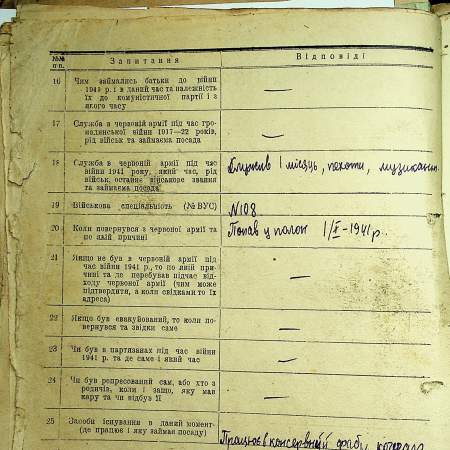 №№ п.п. Запитання Відповіді
16 Чим займались батьки до війни
1941 р. і в даний час та належність
їх до комуністичної партії і з
якого часу —
17 Служба в червоній армії під час гро-
мадянської війни 1917—22 років,
рід військ та займаєма посада —
18 Служба в червоній армії під час
війни 1941 року, який час, рід
військ, останнє військове звання
та займаєма посада
Служив 1 місяць, пехоти, музикант.
19 Військова спеціальність (№ ВУС) N108
20 Коли повернувся з червоної армії та
по якій причині
Попав у полон 1/X-1941 р.
21 Якщо не був в червоній армії під
час війни 1941 р., то по якій при-
чині та де перебував підчас від-
ходу червоної армії (чим може
підтвердити, а коли свідками то їх
адреса) —
22 Якщо був евакуйований, то коли по-
вернувся та звідки саме —
23 Чи був в партизанах під час війни
1941 р. та де саме і який час —
24 Чи був репресований сам, або хто з
родичів, коли і защо, яку мав
кару та чи відбув її —
25 Засоби існування в даний момент
(де працює і яку займає посаду)
Працює в консервній фабр.